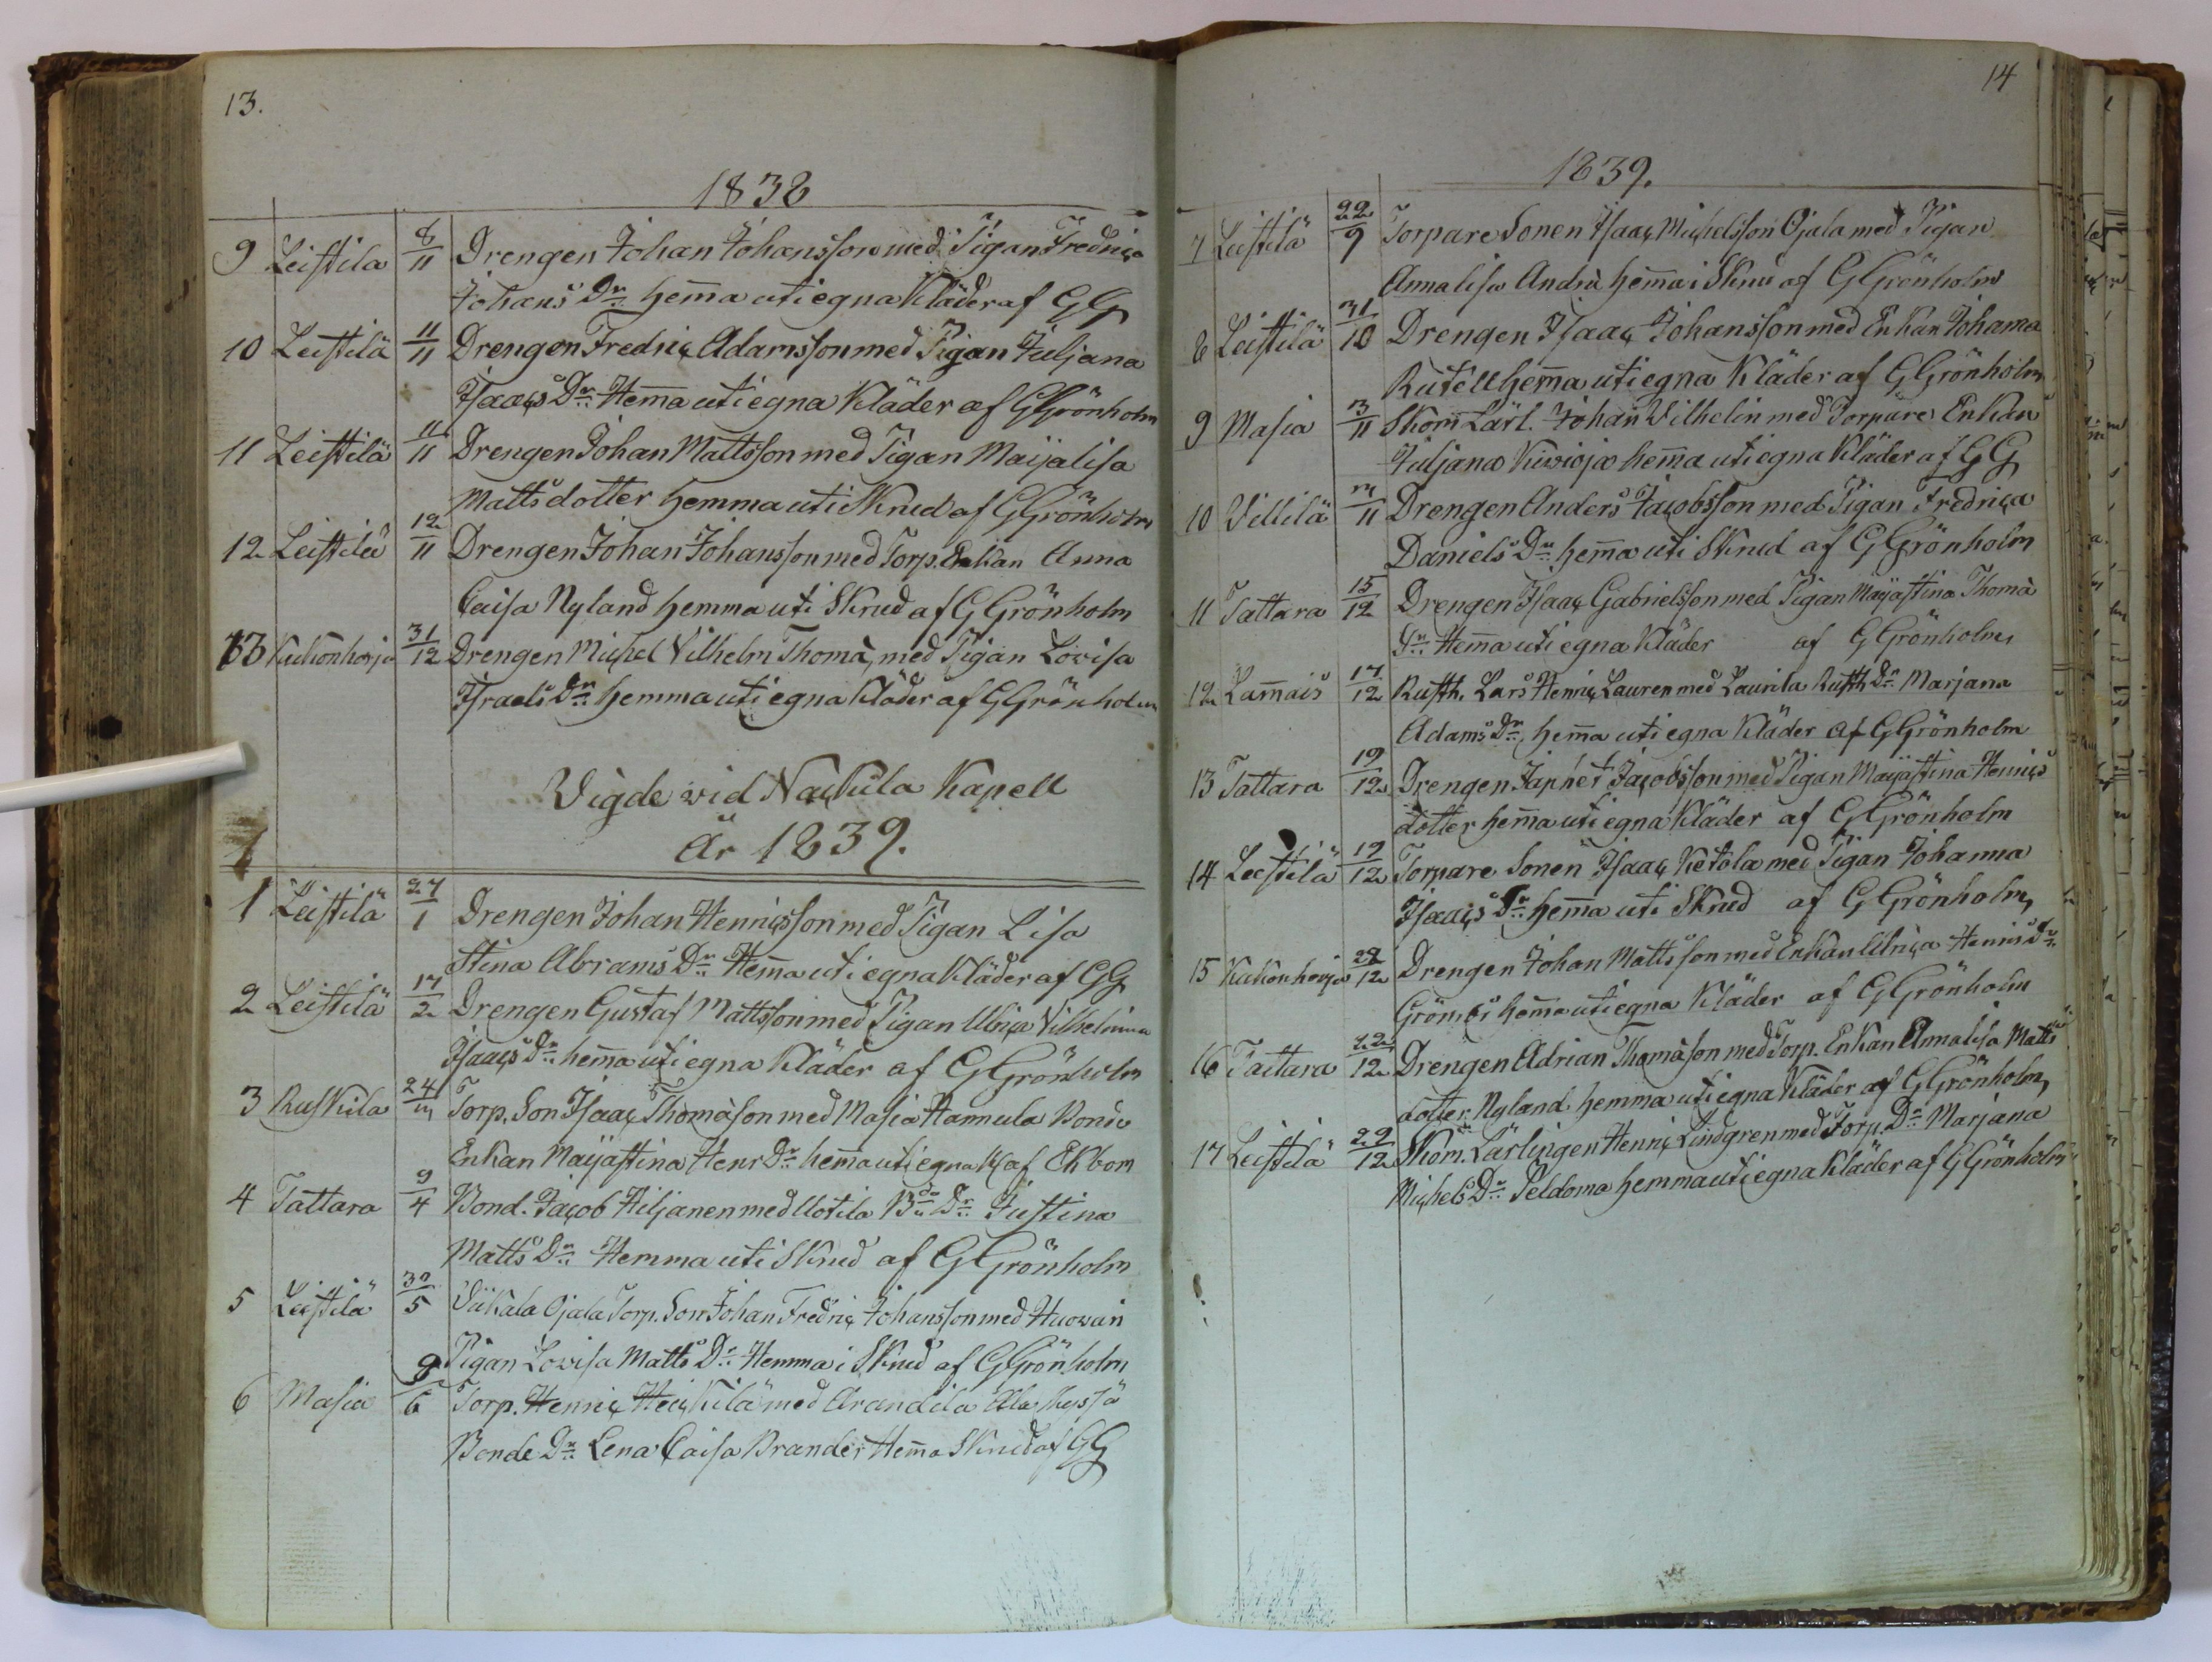 13.
1838
9 Leistila 8/11 Drengen Johan Johansson med Pigan Fredrica
Johans Dr: hemma uti egna Kläder af GG
10 Leistilä 11/11 Drengen Fredric Adamsson med Pigan Juljana
Isaacs Dr: Hemma uti egna Kläder af GGrönholm
11 Leistilä 11/11 Drengen Johan Mattsson med Pigan Maijalisa
Mattsdotter hemma uti Skrud af GGrönholm
12 Leistilä 12/11 Drengen Johan Johansson med Torp. Enkan Anna
Caisa Nyland hemma uti Skrud af GGrönholm
13 Kukonharja 31/12 Drengen Michel Vilhelm Thomà, med Pigan Lovisa
Israels Dr: hemma uti egna Kläder af GGrönholm
Vigde vid Nackila Kapell
År 1839.
1 Leistilä 27/1 Drengen Johan Henricsson med Pigan Lisa
Stina Abrams Dr: Hemma uti egna Kläder af GG
2 Leistilä 17/2 Drengen Gustaf Mattsson med Pigan Ulrica Vilhelmina
Isaacs Dr: hemma uti egna Kläder af GGrönholm
3 Ruskila 24/3 Torp. Son Isaac Thomàson med Masia Hannula Bonde
Enkan Maijastina Henr Dr: hemma uti egna Kl af Ekbom
4 Tattara 9/4 Bond. Jacob Hiljanen med Uotila Bde Dr: Justina
Matts Dr: Hemma uti Skrud af GGrönholm
5 Leistilä 30/5 Viikala Ojala Torp. Son Johan Fredric Johansson med Huovari
Pigan Lovisa Matts Dr: Hemma i Skrud af GGrönholm
6 Masia 9/6 Torp. Henric Heickilä med Arandila Ala Kyssä
Bonde Dr: Lena Caisa Brander Hemma Skrud af GG
14
1839.
7 Leistilä 22/9 Torpare Sonen Isaac Michelsson Ojala med Pigan
Annalisa Andrà hemma i Skru af GGrönholm
8 Leistilä 31/10 Drengen Isaac Johansson med Enkan Johanna
Rutell hemma uti egna Kläder af GGrönholm
9 Masia 3/11 Skom Lärl. Johan Vilhelin med Torpare Enkan
Juljana Kivioja hemma uti egna Kläder af GG
10 Villilä 3/11 Drengen Anders Jacobsson med Pigan Fredrica
Daniels Dr: hemma uti Skrud af GGrönholm
11 Tattara 15/12 Drengen Isaac Gabrielsson med Pigan Maijastina Thomà
Dr: Hemma uti egna Kläder af GGrönholm
12 Lammais 17/12 Rusth. Lars Henric Lauren med Laurila Rusth Dr: Marjana
Adams Dr: hemma uti egna Kläder af GGrönholm
13 Tattara 19/12 Drengen Japhet Jacobsson med Pigan Maijastina Henrics
dotter hemma uti egna Kläder af GGrönholm
14 Leistilä 19/12 Torpare Sonen Isaac Ketola med Pigan Johanna
Isaacs Dr: hemma uti Skrud af GGrönholm
15 Kukonharja 22/12 Drengen Johan Mattsson med Enkan Ulrica Henris Dr:
hemma uti egna Kläder af GGrönholm
16 Tattara 22/12 Drengen Adrian Thomàson med Torp. Enkan Annalisa Matts
dotter Nyland hemma uti egna Kläder af GGrönholm
17 Leistilä 29/12 Skom. Lärlingen Henric Lindgren med Torp. Dr: Marjana
Michels Dr: Peldoma hemma uti egna Kläder af GGrönholm